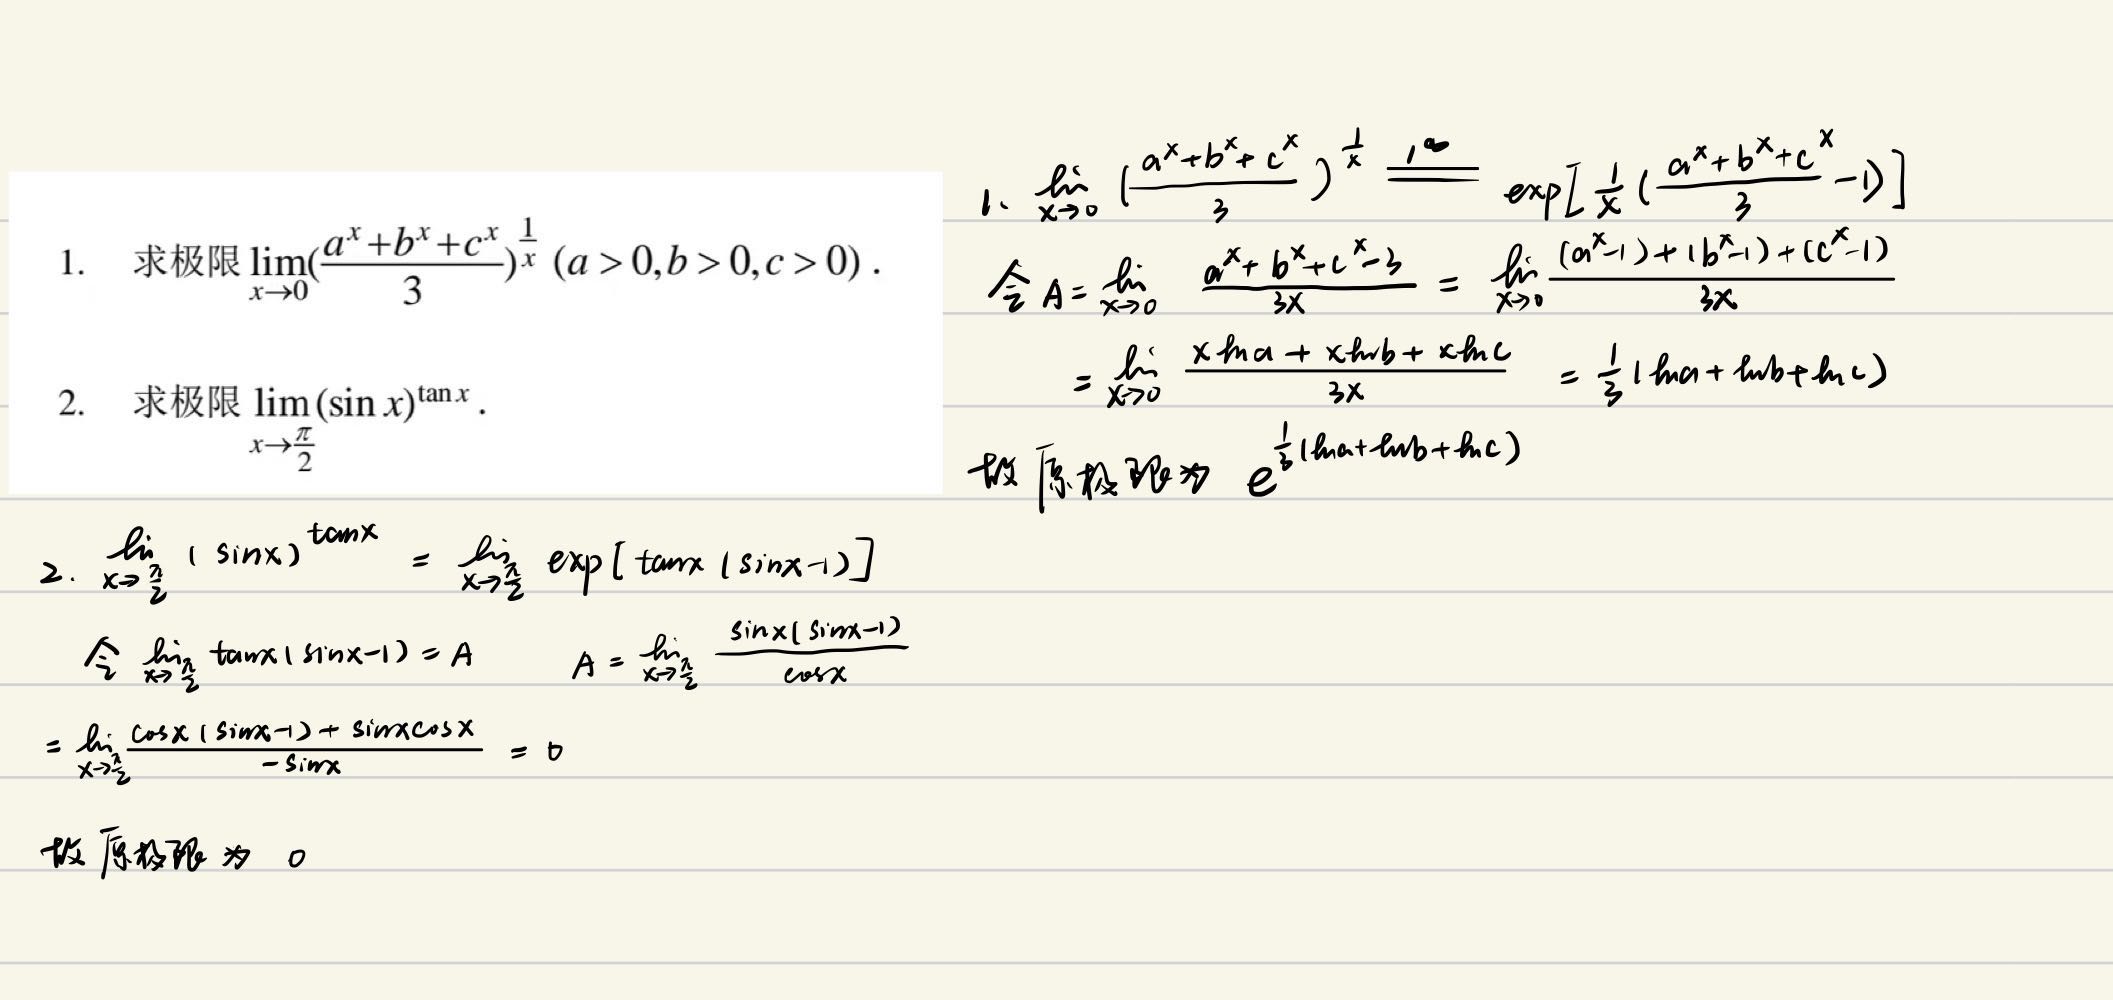 1. 求极限 lim_{x→0} ((a^x+b^x+c^x)/3)^{1/x} (a>0,b>0,c>0) .
2. 求极限 lim_{x→π/2} (sin x)^{tan x} .
1. lim_{x→0} ((a^x+b^x+c^x)/3)^{1/x} \overset{1^∞}{=} exp[1/x ((a^x+b^x+c^x)/3 -1)]
令 A = lim_{x→0} (a^x+b^x+c^x-3)/(3x) = lim_{x→0} ((a^x-1)+(b^x-1)+(c^x-1))/(3x)
= lim_{x→0} (xlna+xlnb+xlnc)/(3x) = 1/3 (lna+lnb+lnc)
故原极限为 e^{1/3(lna+lnb+lnc)}
2. lim_{x→π/2} (sinx)^{tanx} = lim_{x→π/2} exp[tanx(sinx-1)]
令 lim_{x→π/2} tanx(sinx-1) = A A = lim_{x→π/2} (sinx(sinx-1))/(cosx)
= lim_{x→π/2} (cosx(sinx-1)+sinxcosx)/(-sinx) = 0
故原极限为 0